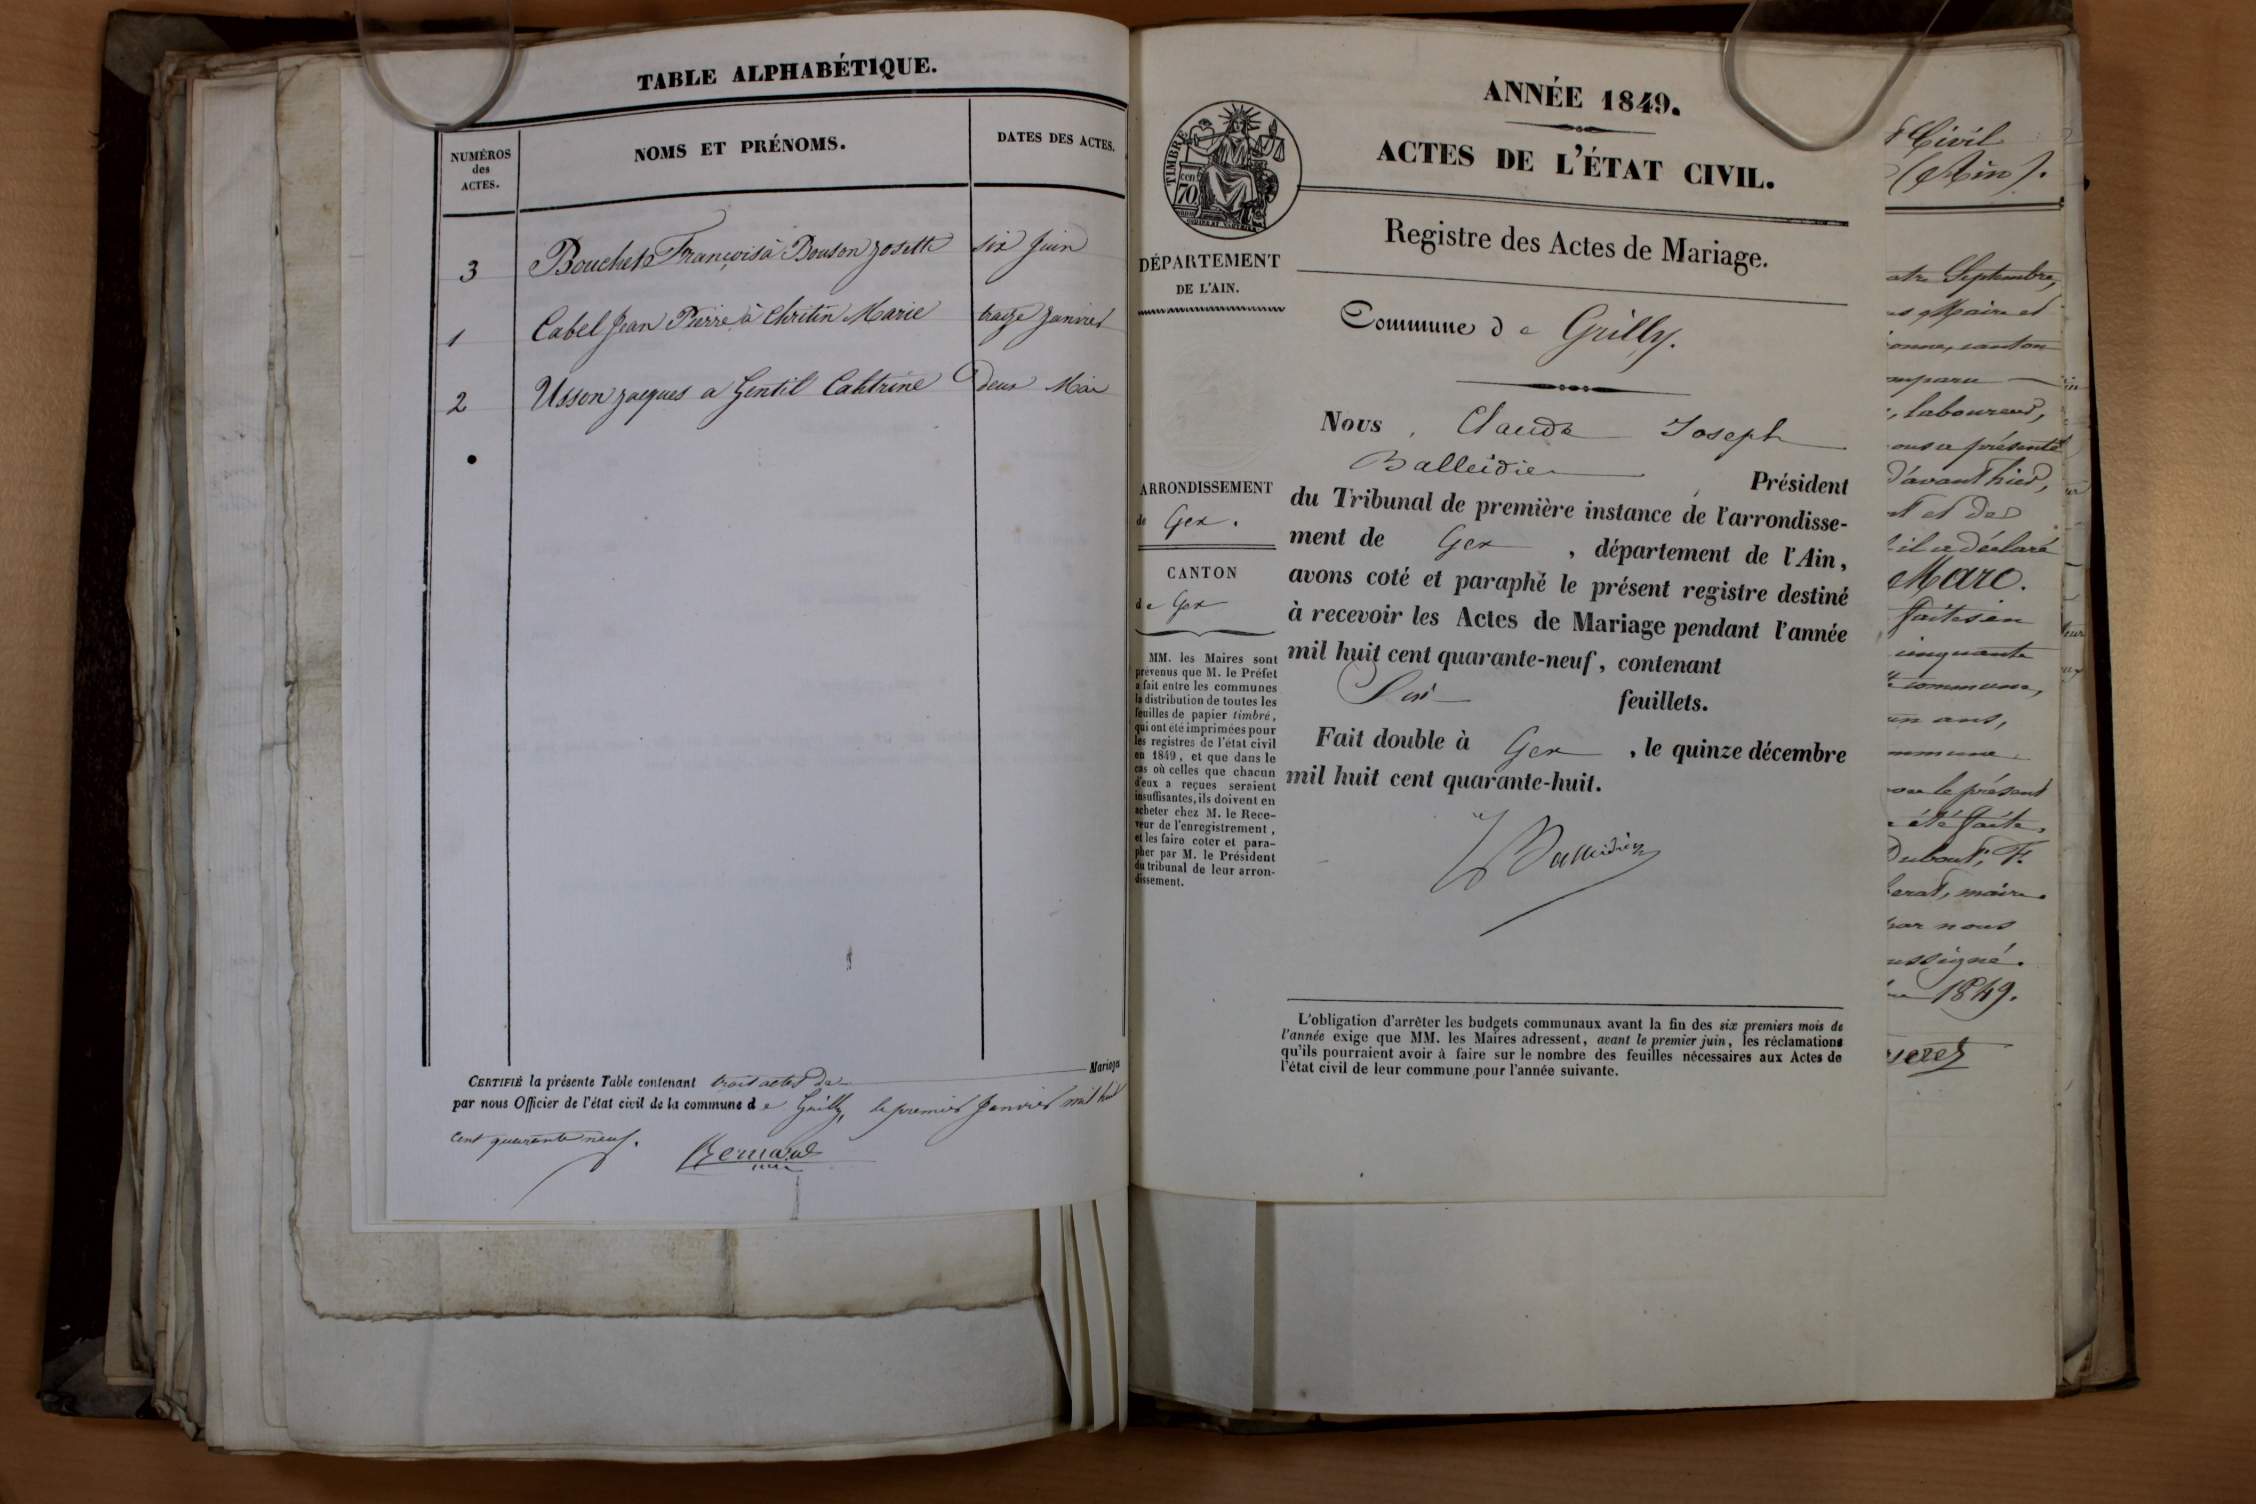 TABLE ALPHABÉTIQUE.
NUMÉROS
des
ACTES.
NOMS ET PRÉNOMS.
DATES DES ACTES.
3 Bouchet François à Bouson Josette six Juin
1 Cabel Jean Pierre à Chritin Marie traize Janvier
2 Usson Jacques a Gentil Cahtrine deux Mai
Mariage
CERTIFIÉ la présente Table contenant trois actes de
par nous Officier de l'état civil de la commune de Grilly, le premier Janvier mil huit
cent quarante neuf.
Bernard
ANNÉE 1849.
ACTES DE L'ÉTAT CIVIL.
Registre des Actes de Mariage.
TIMBRE
70
cen
DÉPARTEMENT
DE L'AIN.
Commune de Grilly.
ARRONDISSEMENT
de Gex.
CANTON
de Gex
MM. les Maires sont
prévenus que M. le Préfet
a fait entre les communes
la distribution de toutes les
feuilles de papier timbré,
qui ont été imprimées pour
les registres de l'état civil
en 1849, et que dans le
cas où celles que chacun
d'eux a reçues seraient
insuffisantes, ils doivent en
acheter chez M. le Rece-
veur de l'enregistrement,
et les faire coter et para-
pher par M. le Président
du tribunal de leur arron-
dissement.
Nous, Claude Joseph
Balleidier, Président
du Tribunal de première instance de l'arrondisse-
ment de Gex, département de l'Ain,
avons coté et paraphé le présent registre destiné
à recevoir les Actes de Mariage pendant l'année
mil huit cent quarante-neuf, contenant
Six feuillets.
Fait double à Gex, le quinze décembre
mil huit cent quarante-huit.
Balleidier
L'obligation d'arrêter les budgets communaux avant la fin des six premiers mois de
l'année exige que MM. les Maires adressent, avant le premier juin, les réclamations
qu'ils pourraient avoir à faire sur le nombre des feuilles nécessaires aux Actes de
l'état civil de leur commune pour l'année suivante.
Civil
(Ain).
Septembre,
Maire et
canton
laboureur,
présenté
d'avant hier,
et des
il a déclaré
Marc.
faites en
cinquante
commune,
un ans,
le présent
été faite,
Dubout, F.
maire
par nous
1849.